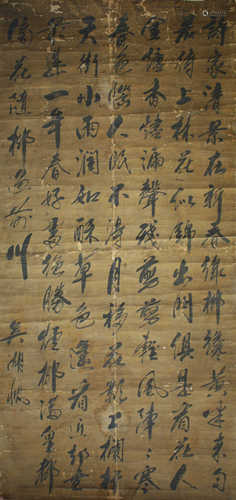 詩家清景在新春綠柳纔黃半未勻
若待上林花似錦出門俱是看花人
金爐香燼漏聲殘剪剪輕風陣〻寒
春色惱人眠不得月移花影上欄杆
天街小雨潤如酥草色遙看近却無
最是一年春好處絕勝煙柳滿皇都
傍花隨柳過前川
吳